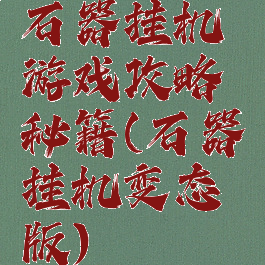 石器挂机
游戏攻略
秘籍(石器
挂机变态
版)